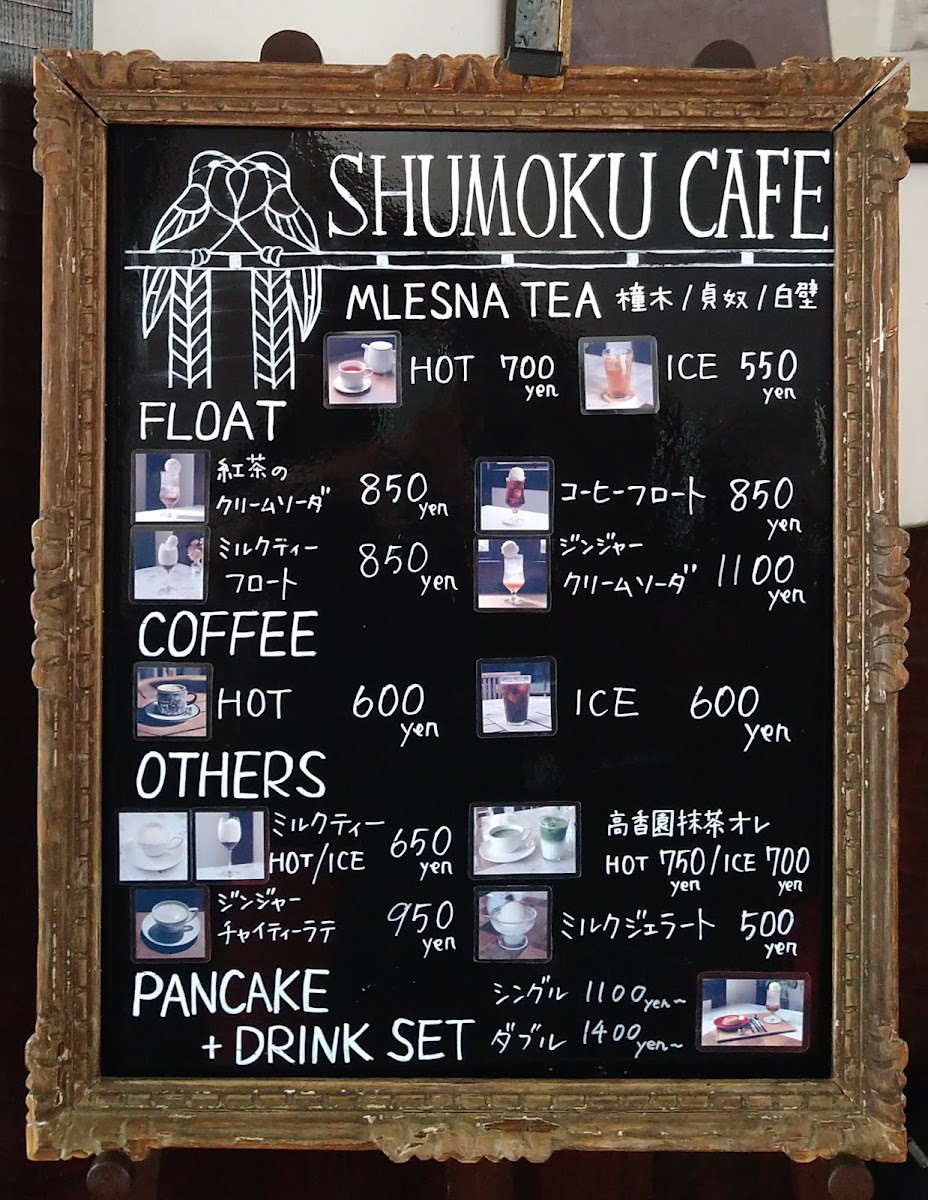 SHUMOKU CAFE
MLESNA TEA 橦木/貞奴/白壁
HOT 700 yen
ICE 550 yen
FLOAT
紅茶の
クリームソーダ 850 yen
コーヒーフロート 850 yen
ミルクティー
フロート 850 yen
ジンジャー
クリームソーダ 1100 yen
COFFEE
HOT 600 yen
ICE 600 yen
OTHERS
ミルクティー
HOT/ICE 650 yen
高香園抹茶オレ
HOT 750 yen/ICE 700 yen
ジンジャー
チャイティーラテ 950 yen
ミルクジェラート 500 yen
PANCAKE
+ DRINK SET
シングル 1100 yen~
ダブル 1400 yen~